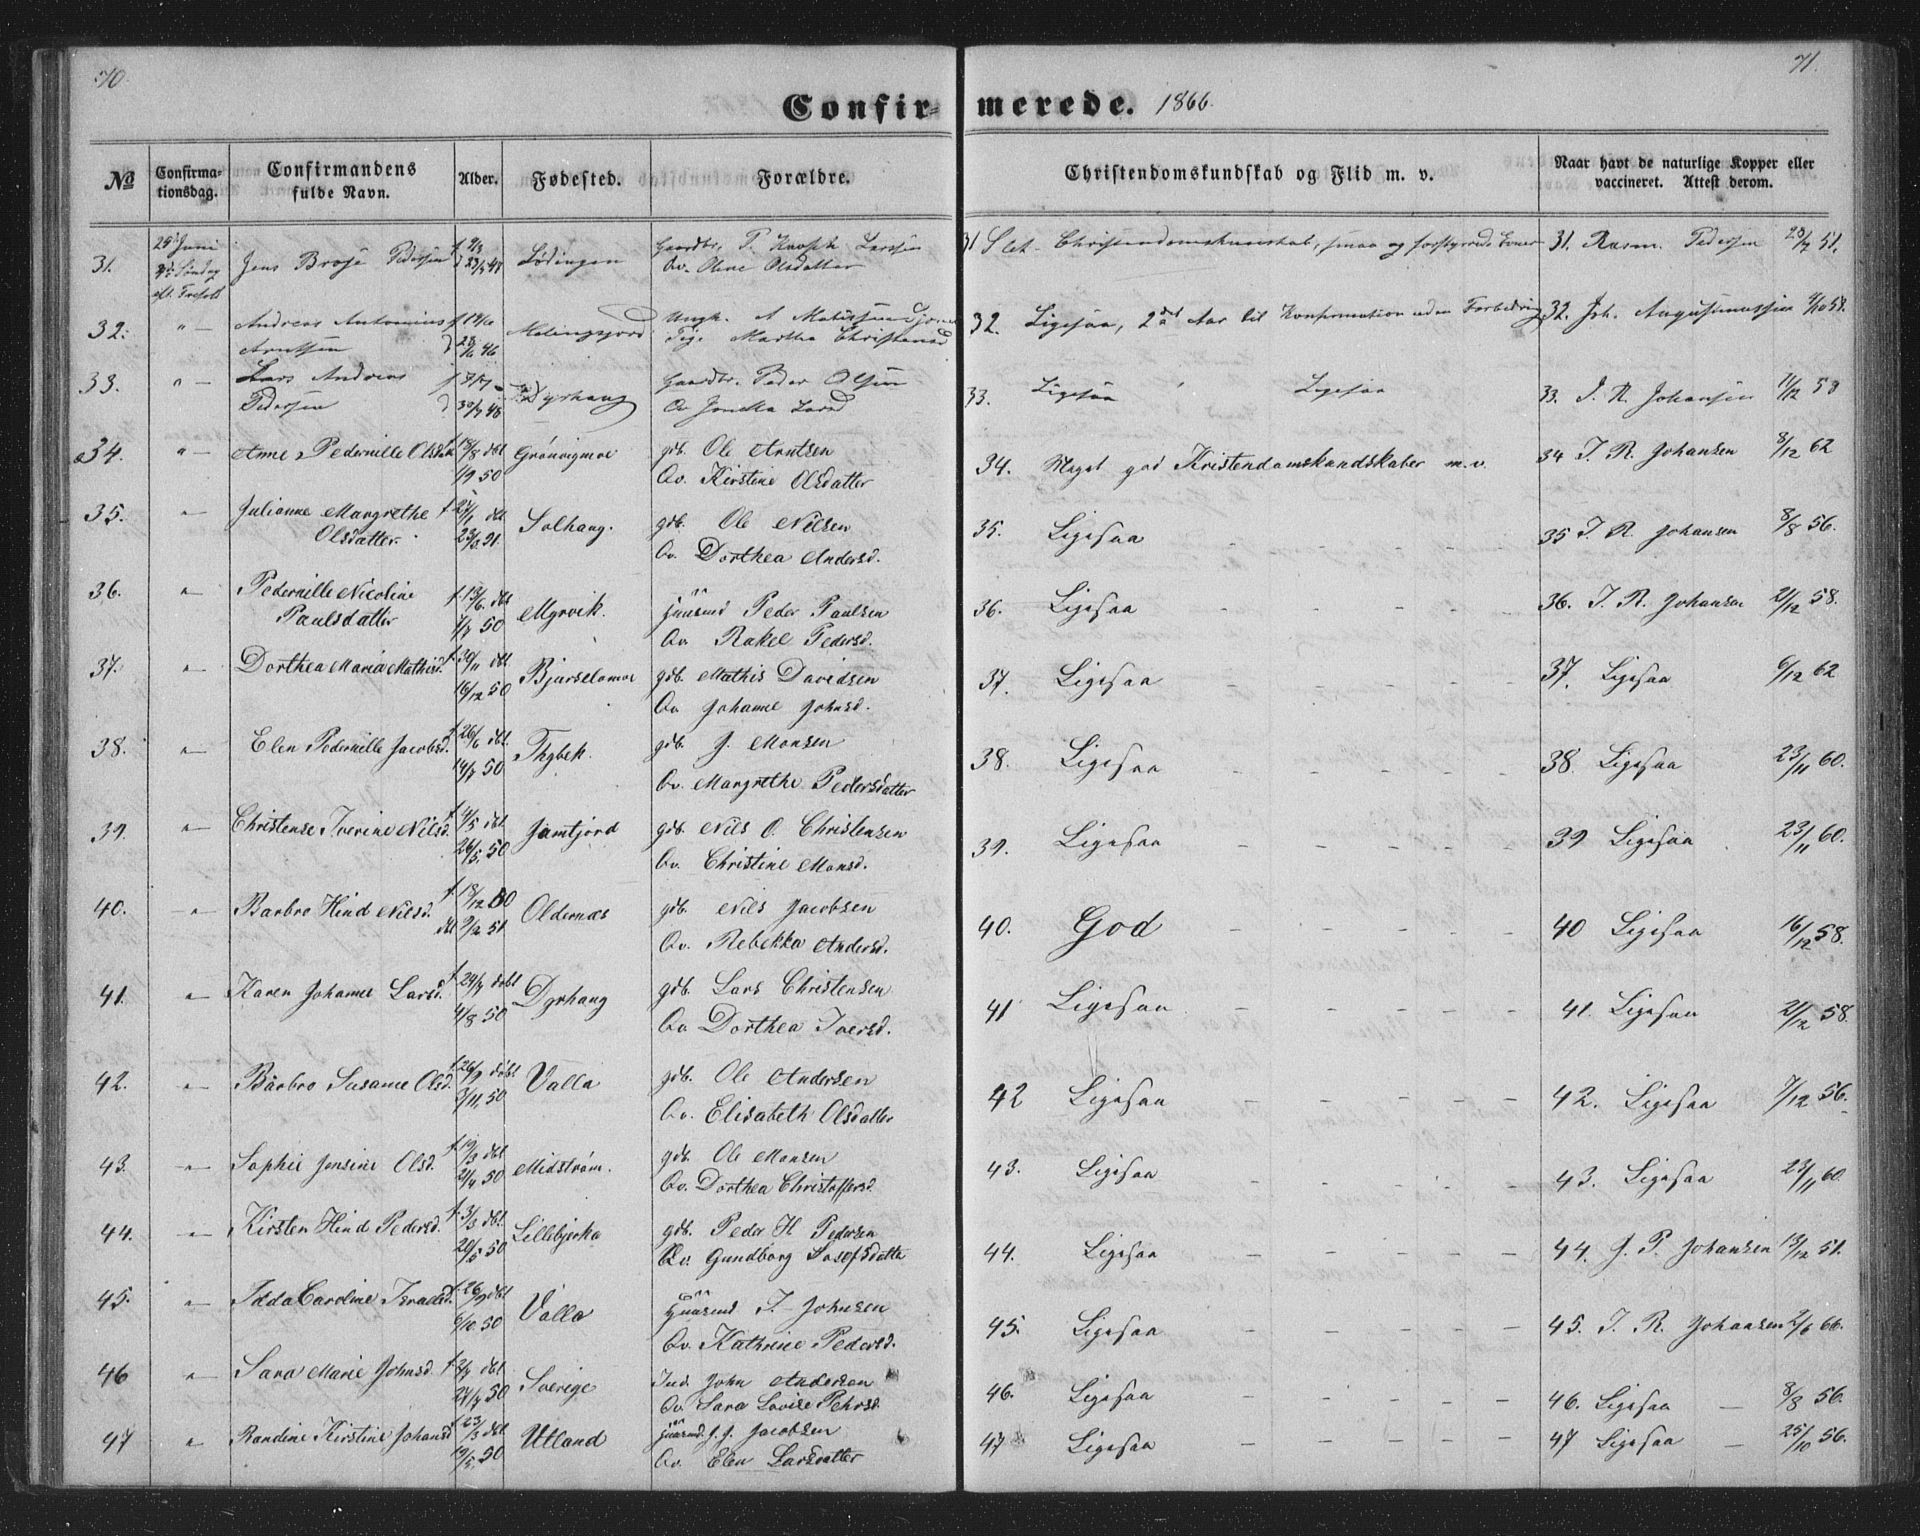 70.
71.
Confir-
merede. 1866.
No
Confirma-
tionsdag.
Confirmandens
fulde Navn.
Alder.
Fødested.
Forældre.
Christendomskundskab og Flid m. v.
Naar havt de naturlige Kopper eller
vaccineret. Attest derom.
31. Jens Pedersen Lødingen Gaardbr. P. Larsen
Qv. Olsdatter
31 Slet Christendomskundskab, smaa og
31. Rasm. Pedersen 51.
32. Andreas Antonius
Arntsen Malangsfjord Martha
32. Ligesaa, 2det Aar til Konfirmation uden Forbedring
32. Joh. Augustinussen 58.
33. Lars Andreas
Pedersen Dyrhaug Gaardbr. Peder Olsen
Qv
33. Ligesaa Ligesaa
33. J. R. Johansen 11/12 58
34. Anne Pedernille Olsdatt f. 18/8 dbt 1/9 50 Grønvigmoe gdb. Ole Arntsen
Qv. Kirstine Olsdatter
34. Meget god Kristendomskundskaber m.v.
34 J. R. Johansen 8/12 62
35. Julianne Margrethe
Olsdatter Solhaug. gdb. Ole Nilsen
Qv. Dorthea Andersd.
35. Ligesaa
35 J. R. Johansen 8/8 56.
36. Pedernille Nicoline
Paulsdatter f. 13/6 dbt 1/7 50 Myrvik. Huusmd Peder Paulsen
Qv Rakel Pedersd.
36. Ligesaa
36. J. R. Johansen 21/12 58.
37. Dorthea Maria Mathisd. f. 30/11 dbt 16/12 50 Bjørselvmoe gdb. Mathis Davidsen
Qv Johanne Johnsd.
37. Ligesaa
37. Ligesaa 6/12 62
38. Elen Pedernille Jacobsd. f. 26/6 dbt. 14/7 50 Thybek. gdb. J. Monsen
Qv. Margrethe Pedersdatter
38. Ligesaa
38. Ligesaa 23/11 60.
39. Christense Iverine Nilsd. dbt 26/5. 50 Jomtjord gdb. Nils O. Christensen
Qv. Christine Monsd.
39. Ligesaa
39 Ligesaa 23/11 60.
40. Barbro Hind Nilsd. f. 18/12 50 dbt 9/2 51 Oldernæs gdb. Nils Jacobsen
Qv. Rebekka Andersd.
40. God
40 Ligesaa 16/12 58.
41. Karen Johanne Larsd. f. 24/7 døbt 4/8 50 Dyrhaug gdb. Lars Christensen
Qv Dorthea Iversd.
41 Ligesaa
41. Ligesaa 21/12 58.
42. Barbro Susanne Olsd. f. 26/9 døbt 3/11. 50 Valla gdb. Ole Andersen
Qv. Elisabeth Olsdatter
42 Ligesaa
42. Ligesaa 7/12 56.
43. Sophie Jensine Olsd. f. 19/3 dbt 21/4 50 Midstrøm. gdb. Ole Monsen
Qv. Dorthea Christoffersd.
43. Ligesaa
43. Ligesaa 23/11 60.
44. Kirsten Hind Pedersd. f. 3/3 dbt. 20/5 50 Lillebjerka gdb. Peder H Pedersen
Qv. Gundborg Josefsdatte
44. Ligesaa
44. J. P. Johansen 13/12 51.
45. Idda Caroline Israelsd. f. 26/9 dbt 6/10. 50 Valla Huusmd I. Johnsen
Qv. Kathrine Pedersd.
45. Ligesaa
45. J. R. Johansen 66.
46 Sara Marie Johnsd. f. 2/7 dbt 27/7 50 Sverige Ind. John Andersen
Qv. Sara Lovise Pehrsd.
46. Ligesaa
46. Ligesaa 8/8 56.
47 Randine Kirstine Johansd f. 23/3 dbt 19/5. 50 Utland Huusmd. J. J. Jacobsen
Qv. Elen Larsdatter
47 Ligesaa
47 Ligesaa 25/10 56.